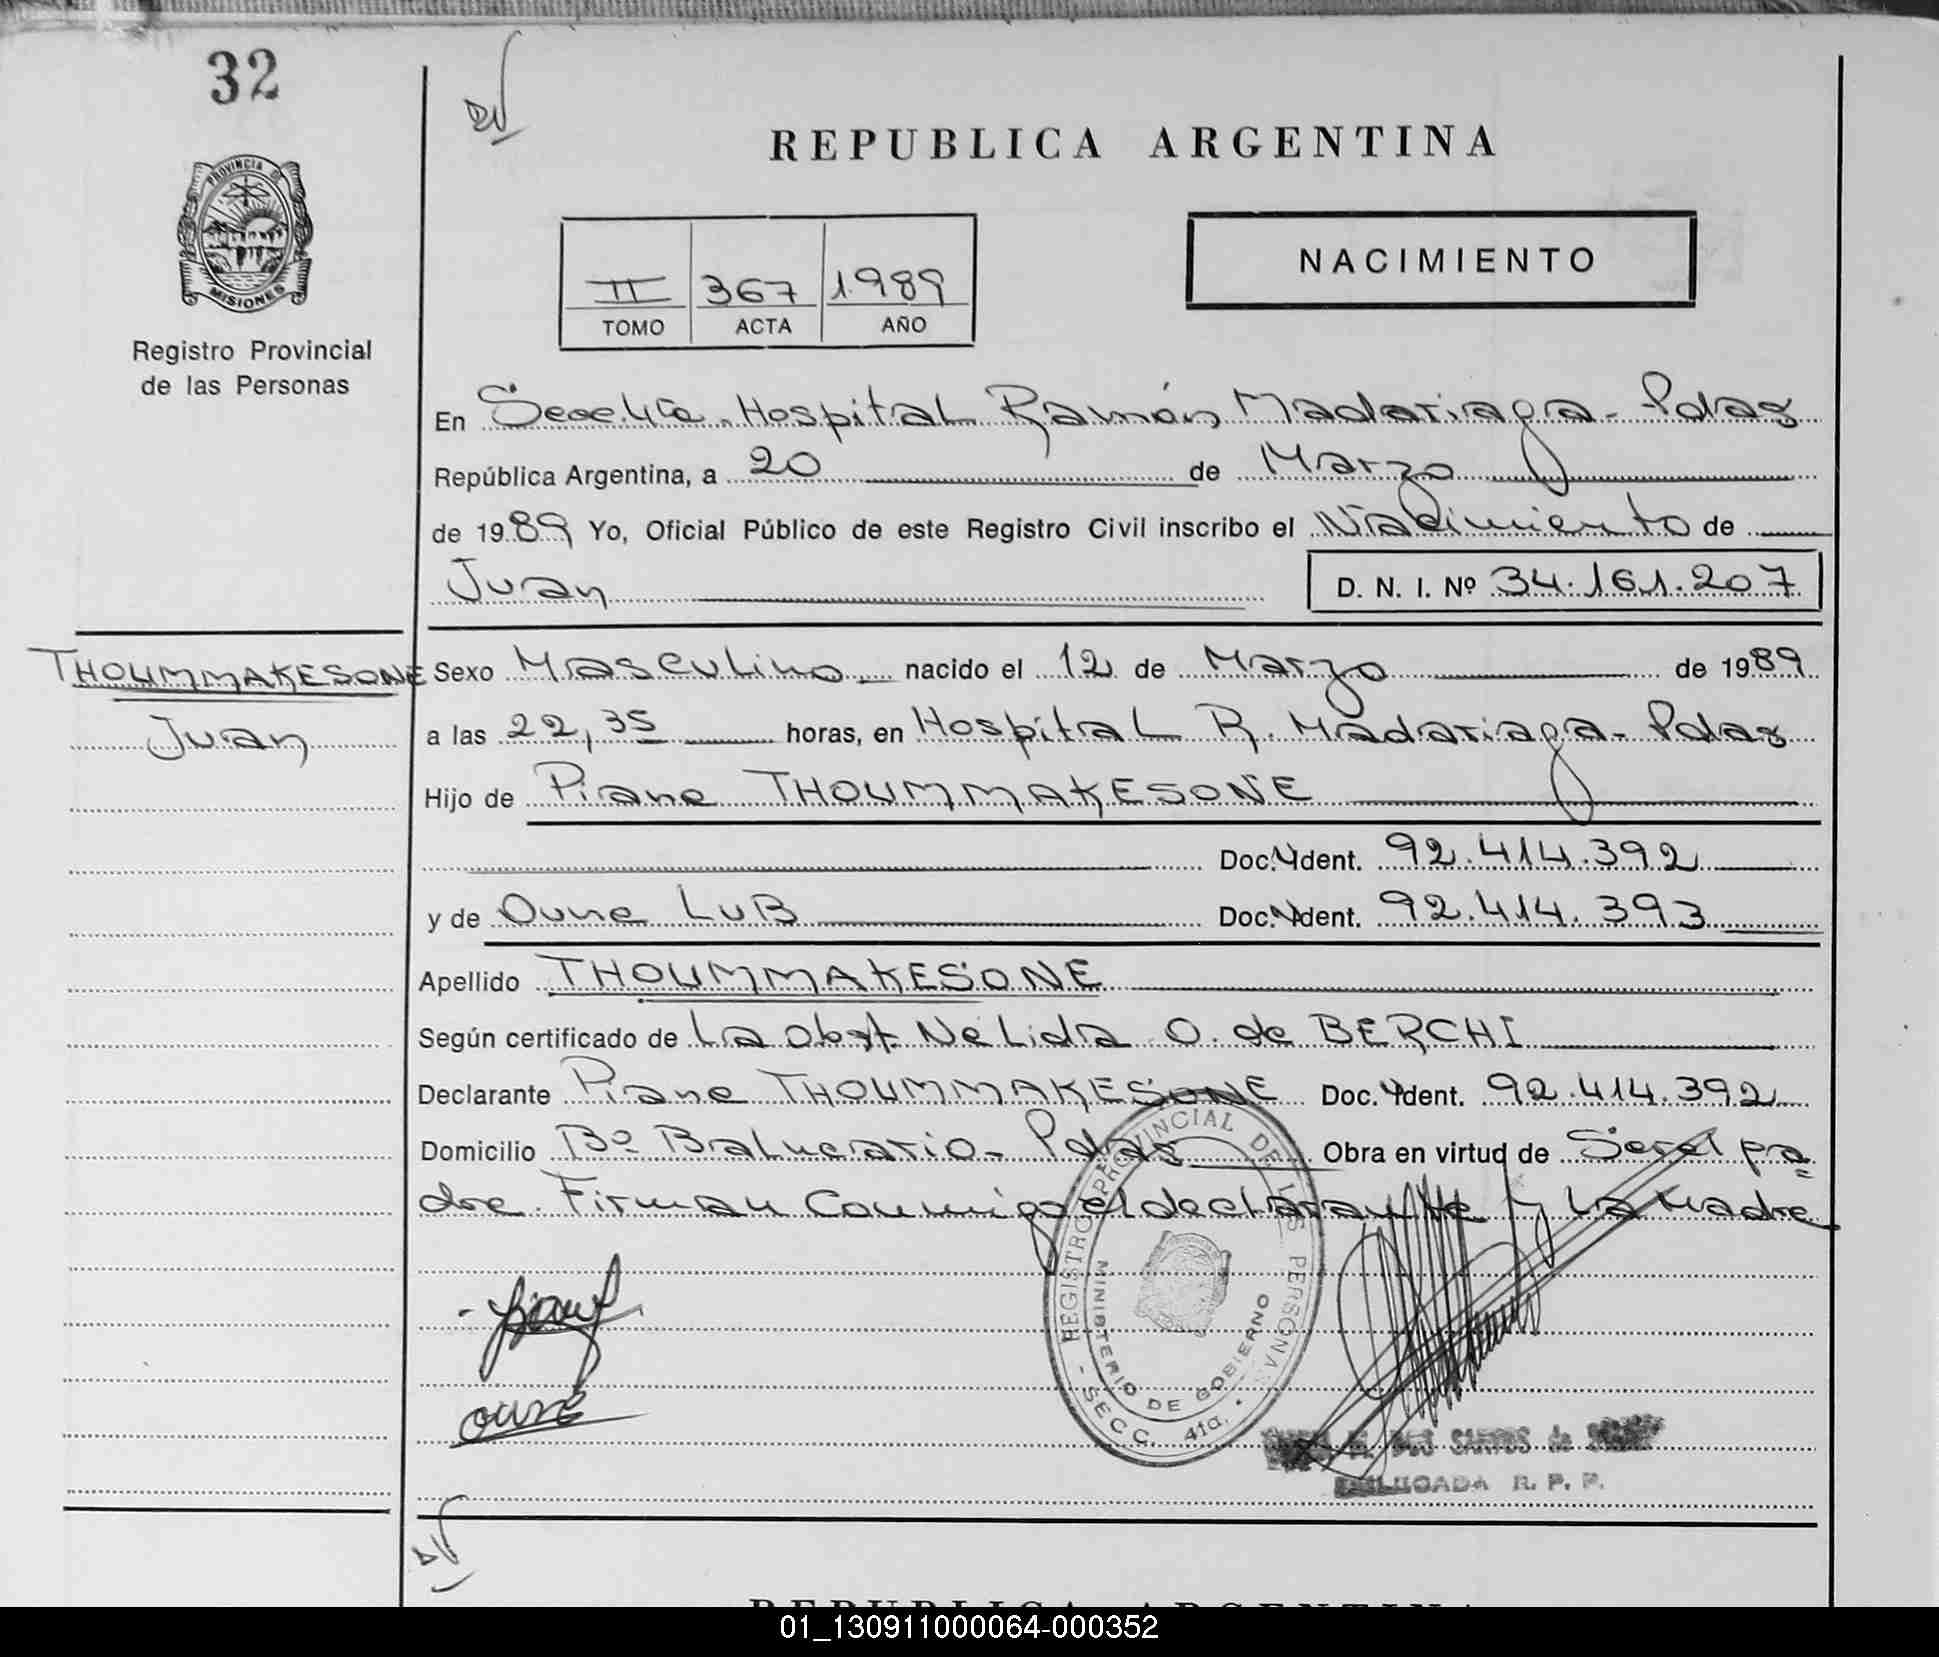 32
REPUBLICA ARGENTINA
PROVINCIA DE
MISIONES
Registro Provincial
de las Personas
II 367 1.989
TOMO ACTA AÑO
NACIMIENTO
En Secc 4ta. Hospital Ramón Madariaga - Pdas
República Argentina, a 20 de Marzo
de 1989 Yo, Oficial Público de este Registro Civil inscribo el Nacimiento de
Juan D. N. I. Nº 34.161.207
THOUMMAKESONE
Juan
Sexo Masculino nacido el 12 de Marzo de 1989
a las 22,35 horas, en Hospital R. Madariaga - Pdas
Hijo de Piane THOUMMAKESONE
Doc. Ydent. 92.414.392
y de Oune LUB Doc. Ydent. 92.414.393
Apellido THOUMMAKESONE
Según certificado de La Obst Nelida O. de BERCHI
Declarante Piane THOUMMAKESONE Doc. Ydent. 92.414.392
Domicilio Bº Balneario - Pdas Obra en virtud de Ser el pa=
dre. Firman Conmigo el declarante y La Madre
REGISTRO PROVINCIAL DE LAS PERSONAS
MINISTERIO DE GOBIERNO
- SECC. 41a.
oune
DOS SANTOS de
R. P. P.
REPUBLICA ARGENTINA
01_130911000064-000352